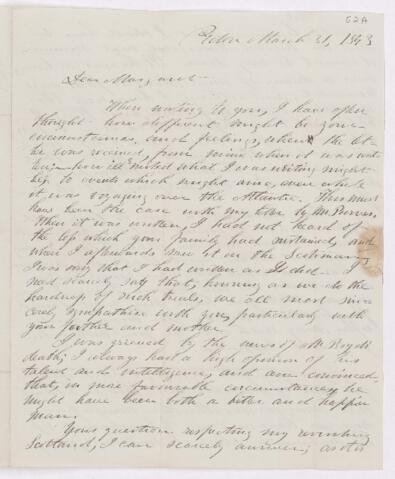 62A
March 31, 1843
Dear Margaret
When writing to you, I have often
thought how different might be your
circumstances and feelings, when the let-
ter was received, from mine when it was writ-
ten how ill suited what I was writing might
be to events which might arise, even while
it was voyaging over the Atlantic. This must
have been the case with my letter by Mr
When it was written, I had not heard of
the loss which your family had sustained, and
when I afterwards saw it in the Scotsman,
I was sorry that I had written as I did. I
need scarcely say that, knowing as we do the
hardness of such trials, we all most sin-
cerely sympathise with you, particularly with
your father and mother.
I was grieved by the news of Mr
death; I always had a high opinion of his
talent and intelligence, and am convinced
that, in more favourable circumstances, he
might have been both a better and happier
man.
Your question respecting my revisiting
Scotland, I can scarcely answer, as